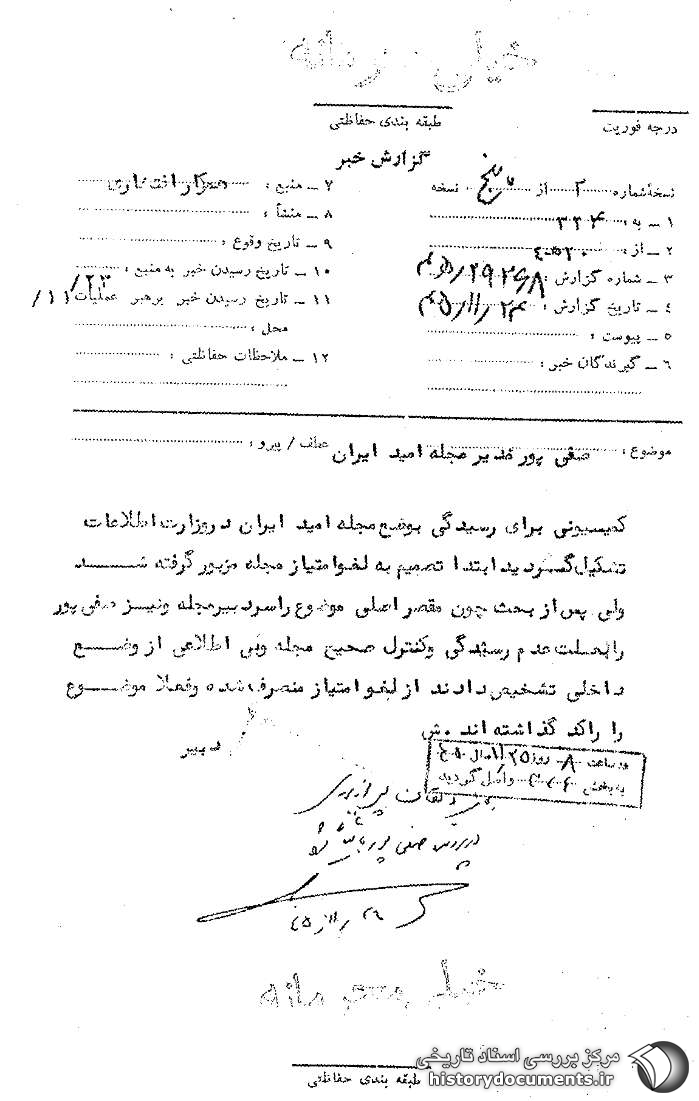 خیلی محرمانه
درجه فوریت
طبقه بندی حفاظتی
گزارش خبر
نسخه شماره ۲ از پنج نسخه
۱ ـ به : ۳۳۴
۲ ـ از :
۳ ـ شماره گزارش :
۴ ـ تاریخ گزارش : ۴۵/۱۱/۲۴
۵ ـ پیوست :
۶ ـ گیرندگان خبر :
۷ ـ منبع : همکار افتخاری
۸ ـ منشأ :
۹ ـ تاریخ وقوع :
۱۰ ـ تاریخ رسیدن خبر به منبع :
۱۱ ـ تاریخ رسیدن خبر برهبر عملیات ۱۱/۲۳/
محل :
۱۲ ـ ملاحظات حفاظتی :
موضوع : صفی پور مدیر مجله امید ایران
عطف / پیرو :
کمیسیونی برای رسیدگی بوضع مجله امید ایران دروزارت اطلاعات
تشکیل گردید ابتدا تصمیم به لغو امتیاز مجله مزبور گرفته شد
ولی پس از بحث چون مقصر اصلی موضوع را سردبیر مجله ونیز صفی پور
را بعلت عدم رسیدگی وکنترل صحیح مجله وبی اطلاعی از وضع
داخلی تشخیص دادند از لغو امتیاز منصرف شده وفعلا موضوع
را راکد گذاشته اند . ش
دبیر
در ساعت ۸ روز ۱۱/۲۵ سال
به بخش واصل گردید
در پرونده صفی پور بایگانی شود
۴۵/۱۱/۲۶
خیلی محرمانه
طبقه بندی حفاظتی
مرکز بررسی اسناد تاریخی
historydocuments.ir